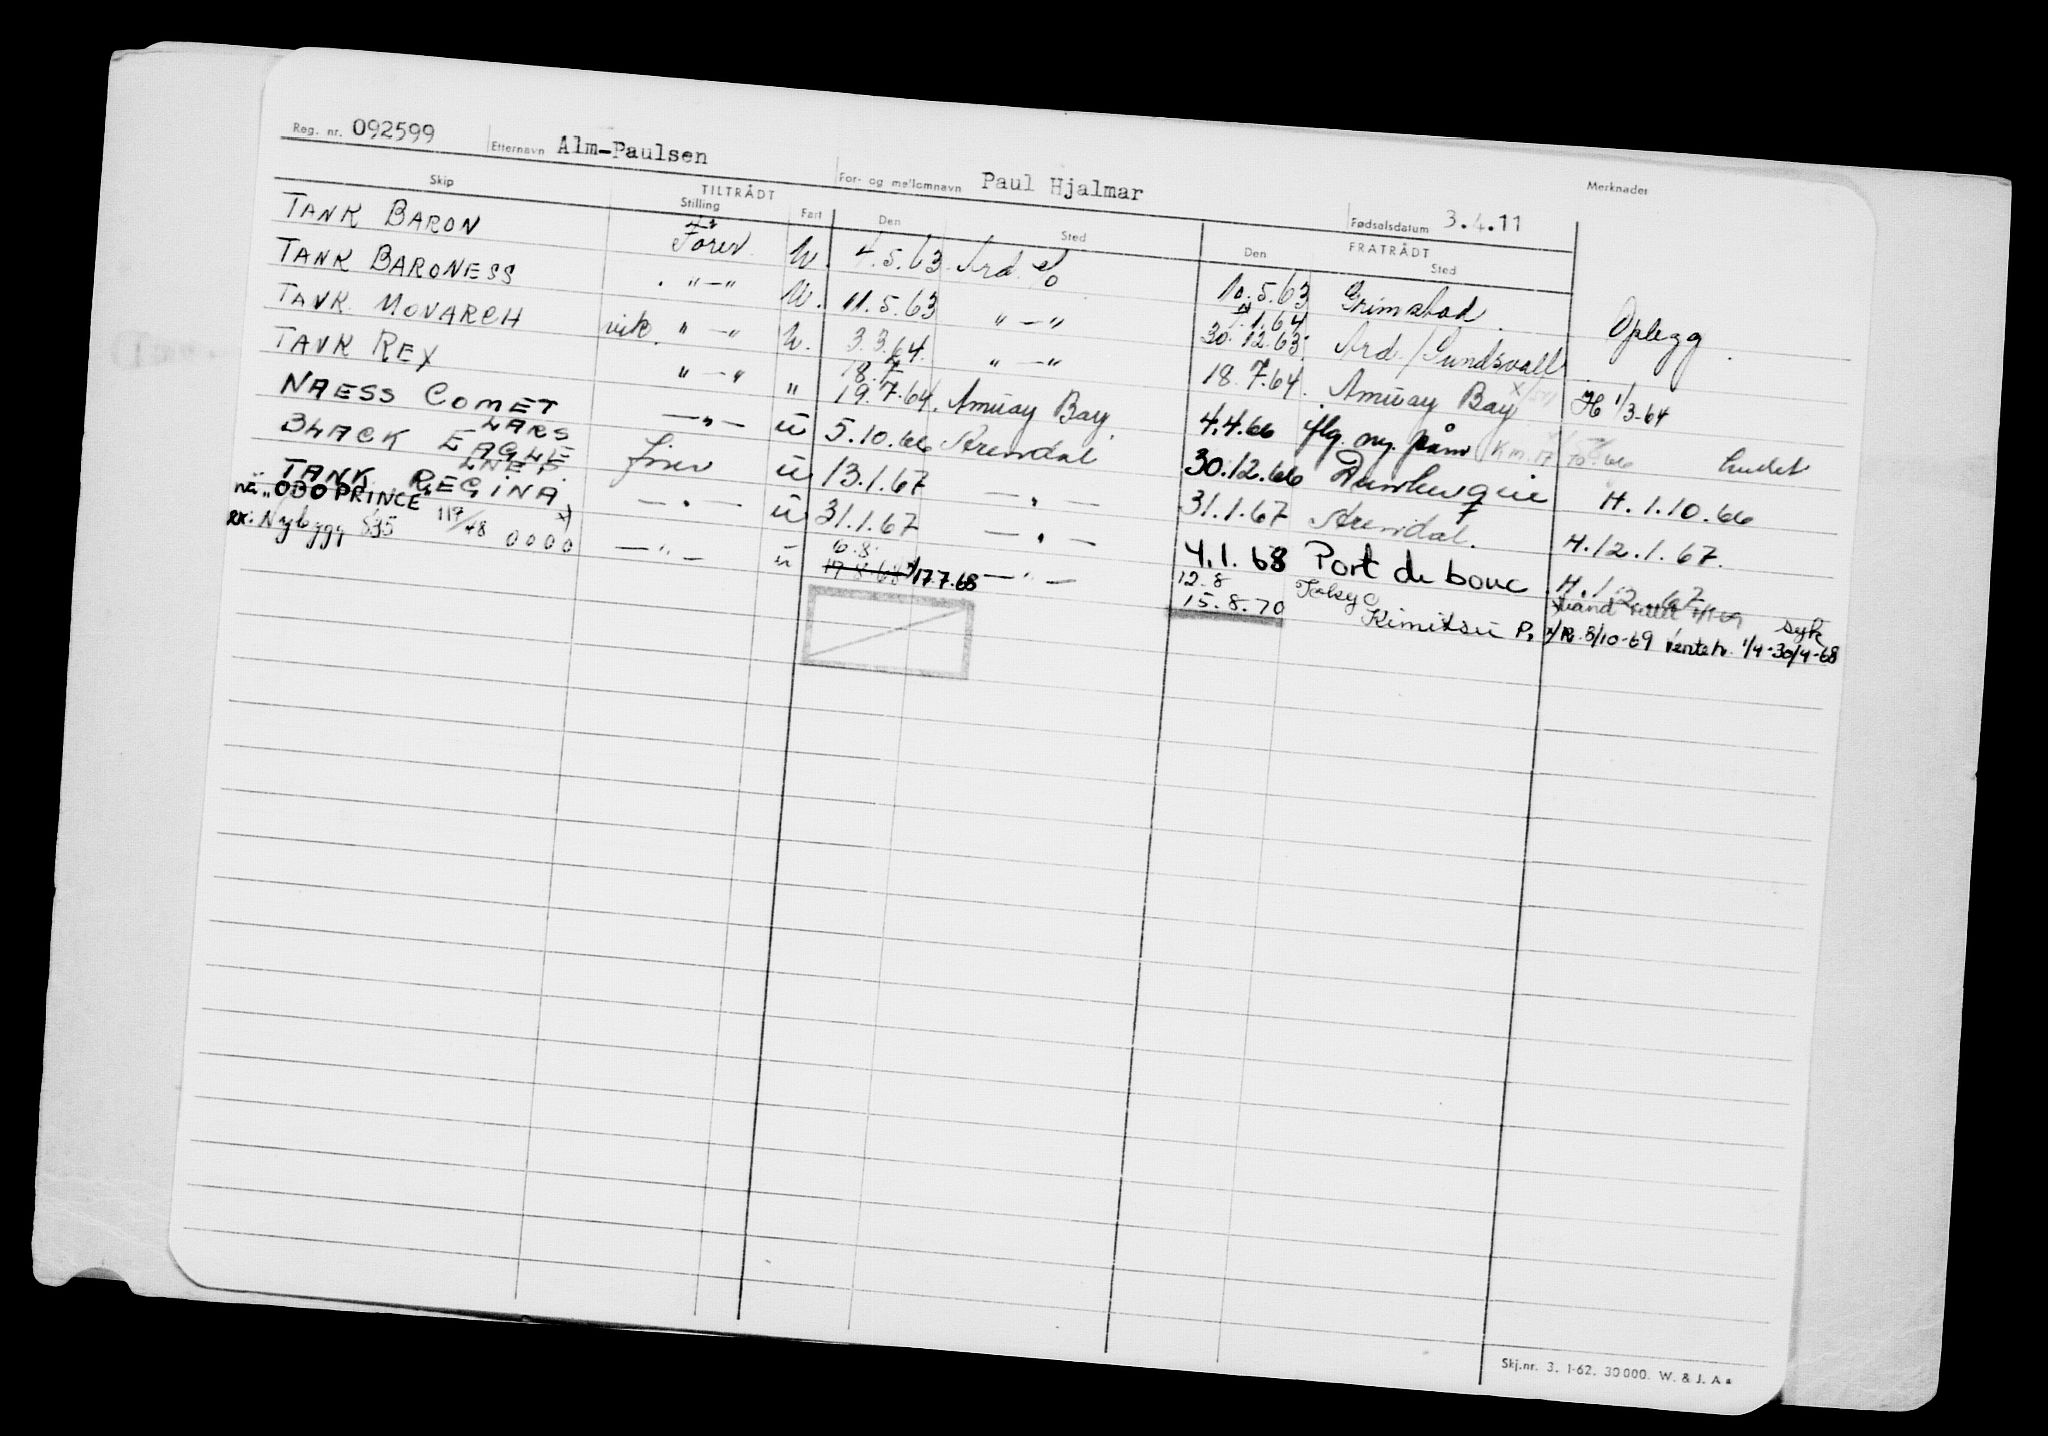 Reg. nr. 092599 Etternavn Alm-Paulsen For- og mellomnavn Paul Hjalmar Fødselsdatum 3.4.11 Merknader
TILTRÅDT FRATRÅDT
Skip Stilling Fart Den Sted Den Sted
TANK BARON Förer U. 4.5.63 Ard. 10.5.63 Grimstad Oplegg
TANK BARONESS " — " U. 11.5.63 " — " 7.1.64 30.12.63 Ard./Sundsvall
TANK MONARCH vik. " — " U. 3.3.64 " — " 18.7.64 Amuay Bay H 1/3-64
TANK REX " — " " 18.7 19.7.64 Amuay Bay 4.4.66 iflg. ny. påm
NAESS COMET LARS — " — ü 5.10.66 Arendal 30.12.66 Dunkerque H. 1.10.66
BLACK EAGLE förer ü 13.1.67 — " — 31.1.67 Arendal. H. 12.1.67
TANK REGINA — " — ü 31.1.67 — " — 4.1.68 Port de bouc H. 1.2.67
nå "OBO PRINCE" 119/48
ex. Nybygg 535 0000 — " — ü 6.8 17.8.68 17.7.68 — " — 12.8 15.8.70 Tokyo syk
Kimitsu P. 8/10-69 1/4-30/4-68
Skj.nr. 3. 1-62. 30000. W. & J. A s